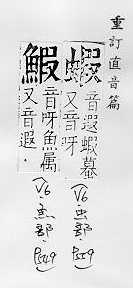 重訂直音篇
蝦
音遐蝦蟇
又音呀
(V6·虫部·
鰕
音呀魚属
又音遐.
(V6·魚部·